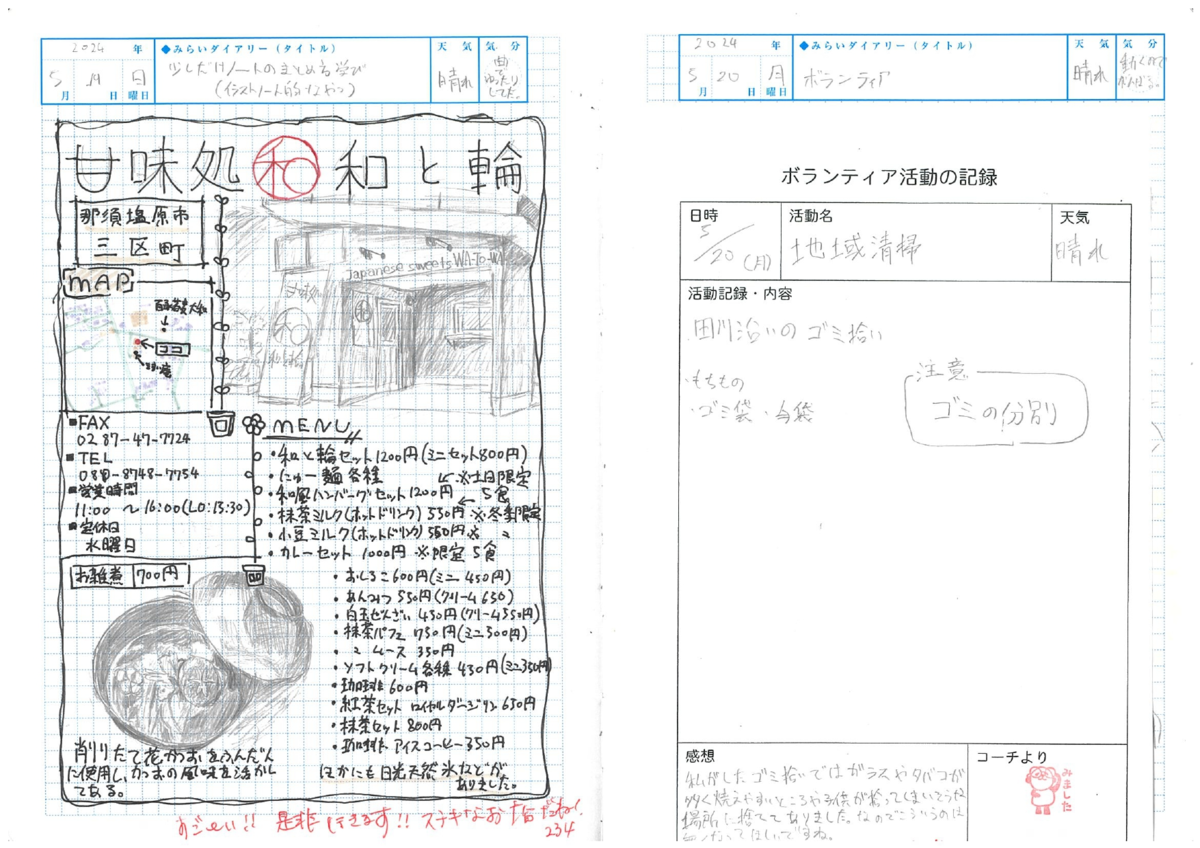 2024 年
5 月 19 日 日 曜日
◆みらいダイアリー(タイトル)
少しだけノートのまとめる学び
(イラストノート的なおっ)
天気
晴れ
気分
ゆったり
してた。
甘味処 和 和と輪
那須塩原市
三区町
MAP
ココ
Japanese sweets WA-To-WA
甘味処
和
■FAX
0287-47-7724
■TEL
■営業時間
11:00 ~ 16:00(LO:15:30)
■定休日
水曜日
MENU
・和と輪セット1200円(ミニセット800円)
・にゅー麺各種 ←※土日限定
・和風ハンバーグセット1200円 ← 5食
・抹茶ミルク(ホットドリンク)550円 ※冬季限定
・小豆ミルク(ホットドリンク)550円 ※ 〃
・カレーセット 1000円 ※限定 5食
・おしるこ600円(ミニ 450円)
・あんみつ 550円(クリーム 650)
・白玉ぜんざい 450円(クリーム550円)
・抹茶パフェ 750円(ミニ500円)
・〃 ムース 350円
・ソフトクリーム各種 430円(ミニ350円)
・珈琲 600円
・紅茶セット ロイヤルダージリン 650円
・抹茶セット 800円
・珈琲 アイスコーヒー 350円
ほかにも日光天然氷などが
ありました。
お雑煮 700円
削りたて花かつおをふんだん
に使用し、かつおの風味を活かし
てある。
すごーい!! 是非行きます!! ステキなお店だね!
234
2024 年
5 月 20 日 月 曜日
◆みらいダイアリー(タイトル)
ボランティア
天気
晴れ
気分
動くので
がんばる。
ボランティア活動の記録
日時
5/20(月)
活動名
地域清掃
天気
晴れ
活動記録・内容
田川沿いのゴミ拾い
・もちもの
・ゴミ袋・手袋
注意
ゴミの分別
感想
私がしたゴミ拾いではガラスやタバコが
多く燃えやすいところや子供が拾ってしまいそうな
場所に捨ててありました。なのでこういうのは
コーチより
みました